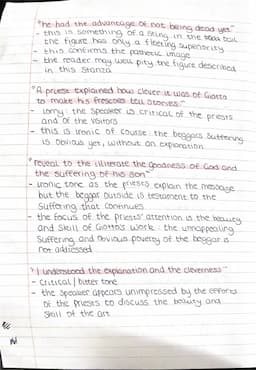 "he had the advantage of not being dead yet"
- this is something of a sting in the tail
the figure has only a fleeting superiority
- this confirms the pathetic image
- the reader may well pity the figure described
in this stanza
"A priest explained how clever it was of Giotto
to make his frescoes tell stories"
- irony: the speaker is critical of the priests
and of the visitors
- this is ironic of course: the beggars suffering
is obvious yet, without an explanation
"reveal to the illiterate the goodness of God and
the suffering of his son"
- ironic tone as the priests explain the message
but the beggar outside is testament to the
suffering that continues
- the focus of the priests' attention is the beauty
and skill of Giotto's work: the unappealing
suffering and obvious poverty of the beggar is
not addressed
"I understood the explanation and the cleverness"
- critical / bitter tone
- the speaker appears unimpressed by the efforts
of the priests to discuss the beauty and
skill of the art